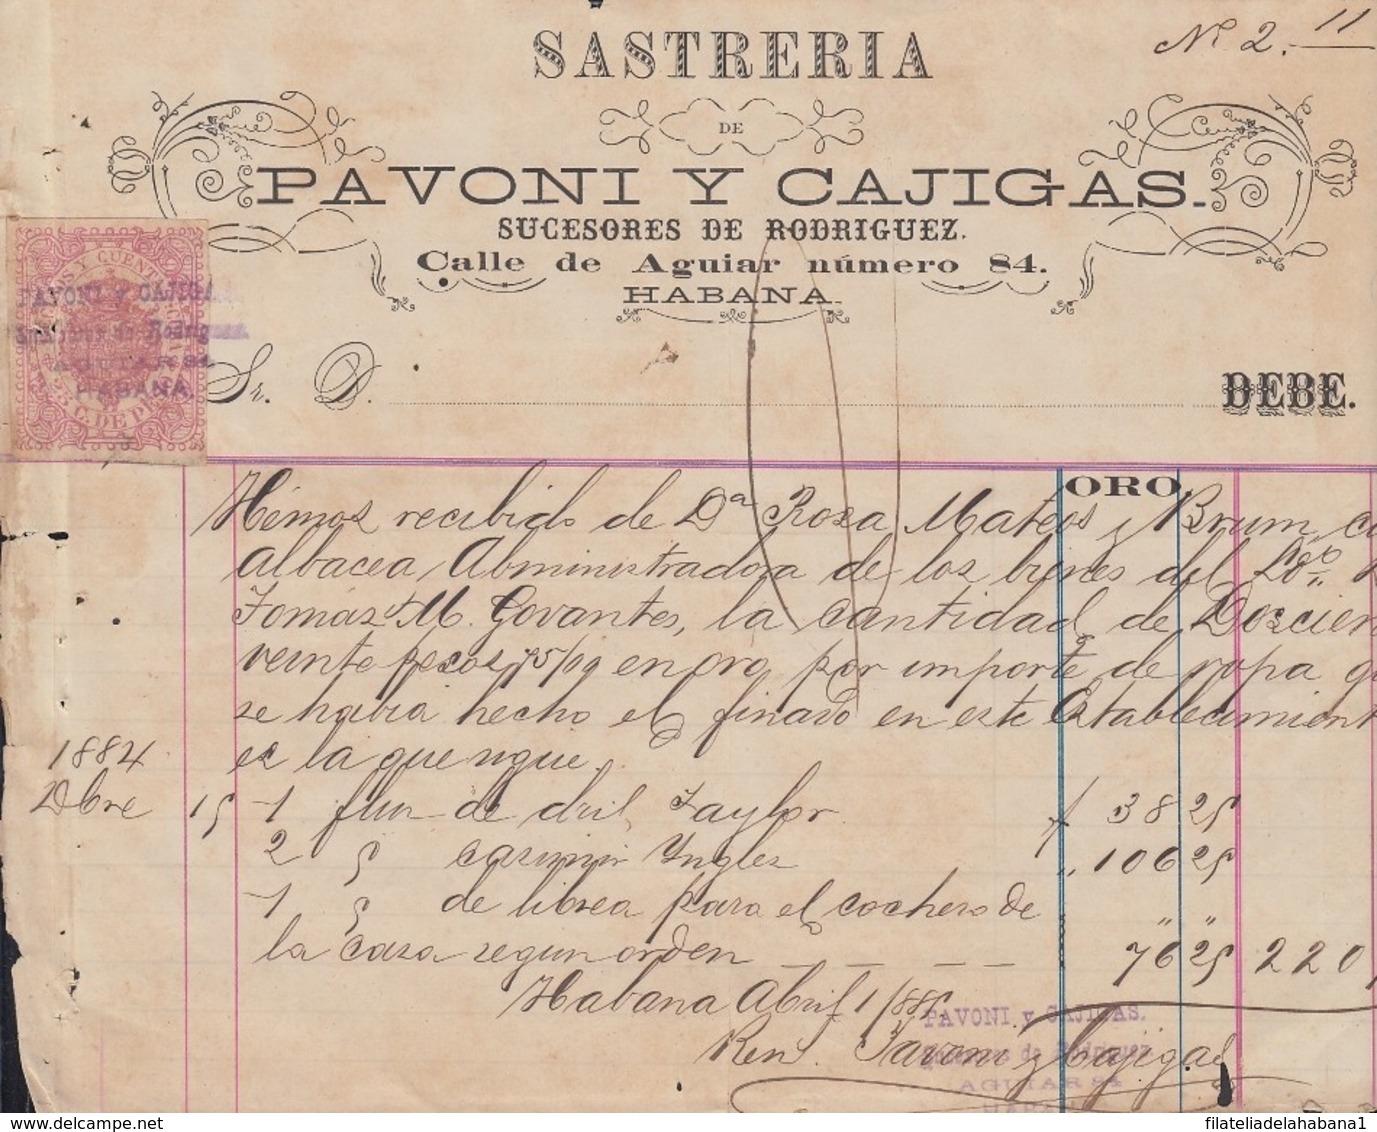 Nº 2. 11
SASTRERIA
DE
PAVONI Y CAJIGAS.
SUCESORES DE RODRIGUEZ.
Calle de Aguiar número 84.
HABANA.
RECIBOS Y CUENTAS
25 C. DE P.
PAVONI Y CAJIGAS
Sucesores de Rodriguez
AGUIAR 84
HABANA
Sr. D. DEBE.
ORO
Hémos recibido de Dª Rosa Mateos y Brum co
Albacea Administradora de los bienes del Ldo.
Tomás M. Govantes, la cantidad de Doscien
veinte pesos 75/00 en oro por importe de ropa q
se habia hecho el finado en este Establecimient
es la que sigue.
1884
Dbre 15 1 flus de dril Taylor $ 38 25
2 " casimir Yngles " 106 25
1 " de librea para el cochero de
la casa segun orden 76 25 220
Habana Abril 1/885
PAVONI y CAJIGAS.
Pavoni y Cajigas
Sucesores de Rodriguez
AGUIAR 84
HABANA
filateliadelahabana1